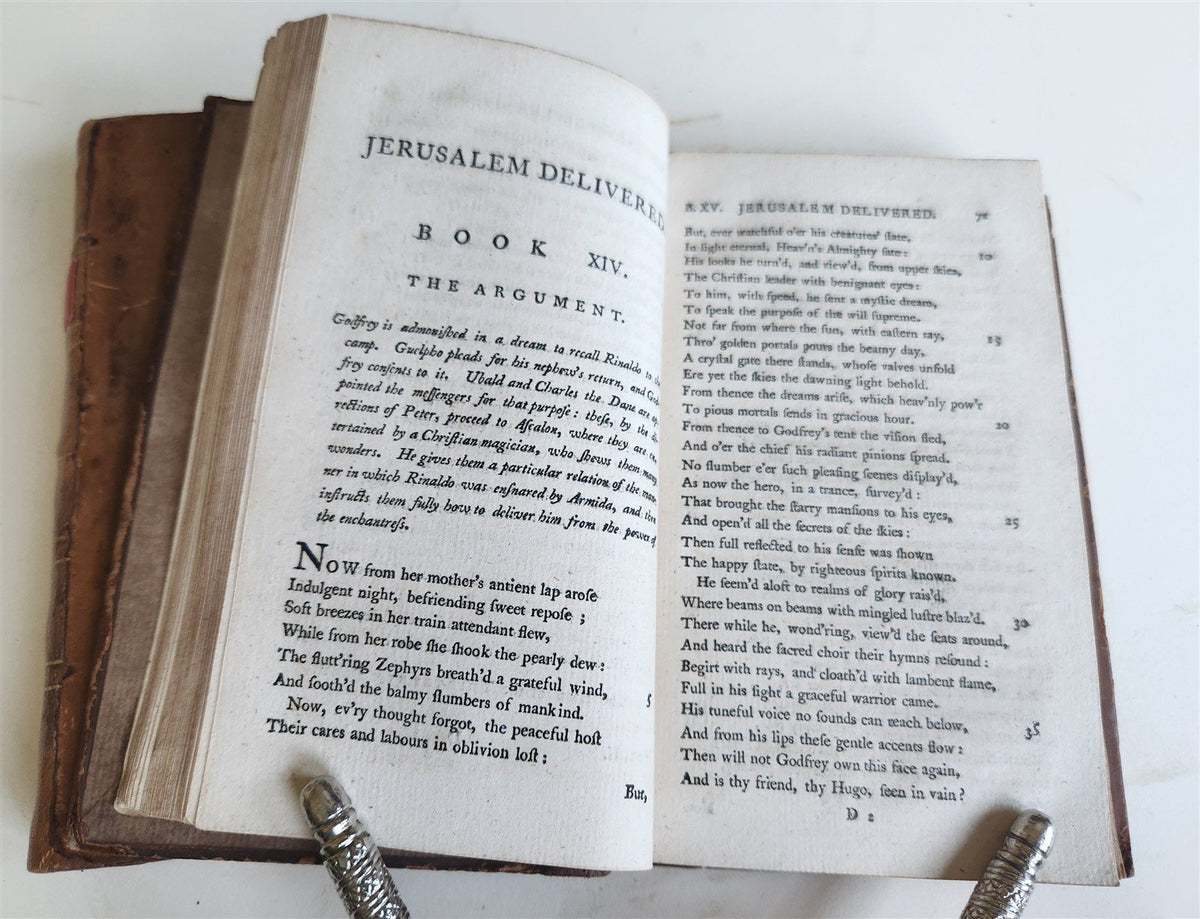 JERUSALEM DELIVERED
BOOK XIV.
THE ARGUMENT.
Godfrey is admoniſhed in a dream to recall Rinaldo to the
camp. Guelpho pleads for his nephew's return, and God-
frey conſents to it. Ubald and Charles the Dane are ap-
pointed the meſſengers for that purpoſe: theſe, by the di-
rections of Peter, proceed to Aſcalon, where they are en-
tertained by a Chriſtian magician, who ſhews them many
wonders. He gives them a particular relation of the man-
ner in which Rinaldo was enſnared by Armida, and then
inſtructs them fully how to deliver him from the power of
the enchantreſs.
NOW from her mother's antient lap aroſe
Indulgent night, befriending ſweet repoſe ;
Soft breezes in her train attendant flew,
While from her robe ſhe ſhook the pearly dew :
The flutt'ring Zephyrs breath'd a grateful wind, 5
And ſooth'd the balmy ſlumbers of mankind.
Now, ev'ry thought forgot, the peaceful hoſt
Their cares and labours in oblivion loſt :
But,
B. XV. JERUSALEM DELIVERED.
But, ever watchful o'er his creatures' ſtate,
In light eternal, Heav'n's Almighty ſate : 10
His looks he turn'd, and view'd, from upper ſkies,
The Chriſtian leader with benignant eyes :
To him, with ſpeed, he ſent a myſtic dream,
To ſpeak the purpoſe of the will ſupreme.
Not far from where the ſun, with eaſtern ray, 15
Thro' golden portals pours the beamy day,
A cryſtal gate there ſtands, whoſe valves unfold
Ere yet the ſkies the dawning light behold.
From thence the dreams ariſe, which heav'nly pow'r
To pious mortals ſends in gracious hour. 20
From thence to Godfrey's tent the viſion fled,
And o'er the chief his radiant pinions ſpread.
No ſlumber e'er ſuch pleaſing ſcenes diſplay'd,
As now the hero, in a trance, ſurvey'd :
That brought the ſtarry manſions to his eyes, 25
And open'd all the ſecrets of the ſkies :
Then full reflected to his ſenſe was ſhown
The happy ſtate, by righteous ſpirits known.
He ſeem'd aloft to realms of glory rais'd,
Where beams on beams with mingled luſtre blaz'd. 30
There while he, wond'ring, view'd the ſeats around,
And heard the ſacred choir their hymns reſound :
Begirt with rays, and cloath'd with lambent flame,
Full in his ſight a graceful warrior came.
His tuneful voice no ſounds can reach below, 35
And from his lips theſe gentle accents flow :
Then will not Godfrey own this face again,
And is thy friend, thy Hugo, ſeen in vain ?
D 2